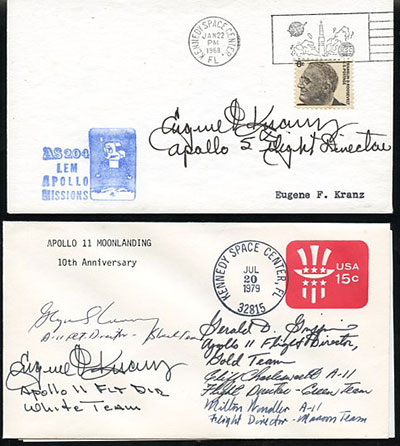 KENNEDY SPACE CENTER,
JAN 22
PM
1968
FL
6¢
Eugene F. Kranz
Apollo 5 Flight Director
AS 204
LEM
APOLLO
MISSIONS
Eugene F. Kranz
APOLLO 11 MOONLANDING
10th Anniversary
KENNEDY SPACE CENTER, FL
JUL
20
1979
32815
USA
15c
Glynn S. Lunney
A-11 Flt. Director - Black Team
Eugene F. Kranz
Apollo 11 Flt Dir
White Team
Gerald D. Griffin
Apollo 11 Flight Director,
Gold Team
Cliff Charlesworth A-11
Flight Director - Green Team
Milton Windler A-11
Flight Director - Maroon Team